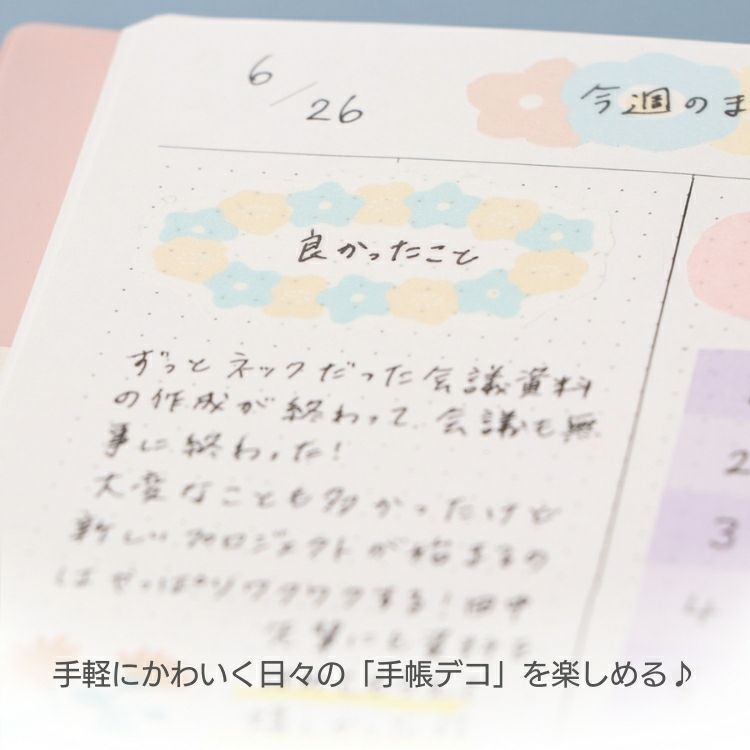 6/26
今週のま
良かったこと
ずっとネックだった会議資料
の作成が終わって、会議も無
事に終わった!
大変なことも多かったけど
新しいプロジェクトが始まるの
はやっぱりワクワクする!
2
3
4
手軽にかわいく日々の「手帳デコ」を楽しめる♪